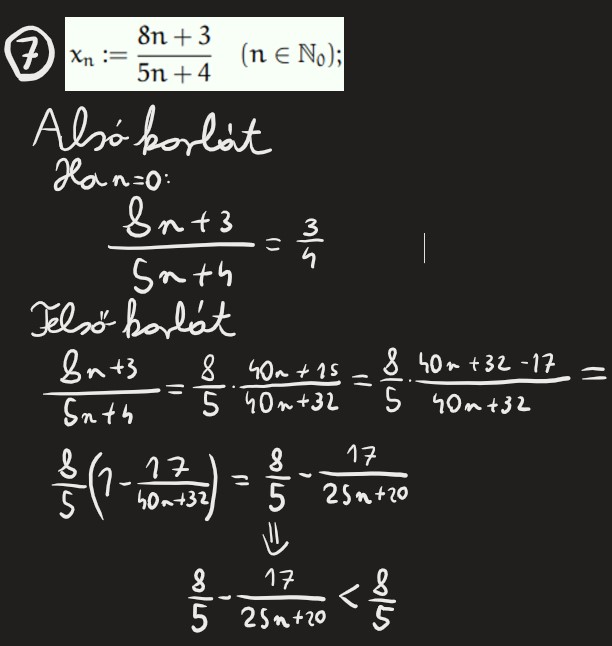 7 xₙ := (8n + 3)/(5n + 4) (n ∈ ℕ₀);
Alsó korlát
Ha n=0:
(8n+3)/(5n+4) = 3/4
Felső korlát
(8n+3)/(5n+4) = 8/5 · (40n+15)/(40n+32) = 8/5 · (40n+32-17)/(40n+32) =
8/5 (1 - 17/(40n+32)) = 8/5 - 17/(25n+20)
⇓
8/5 - 17/(25n+20) < 8/5